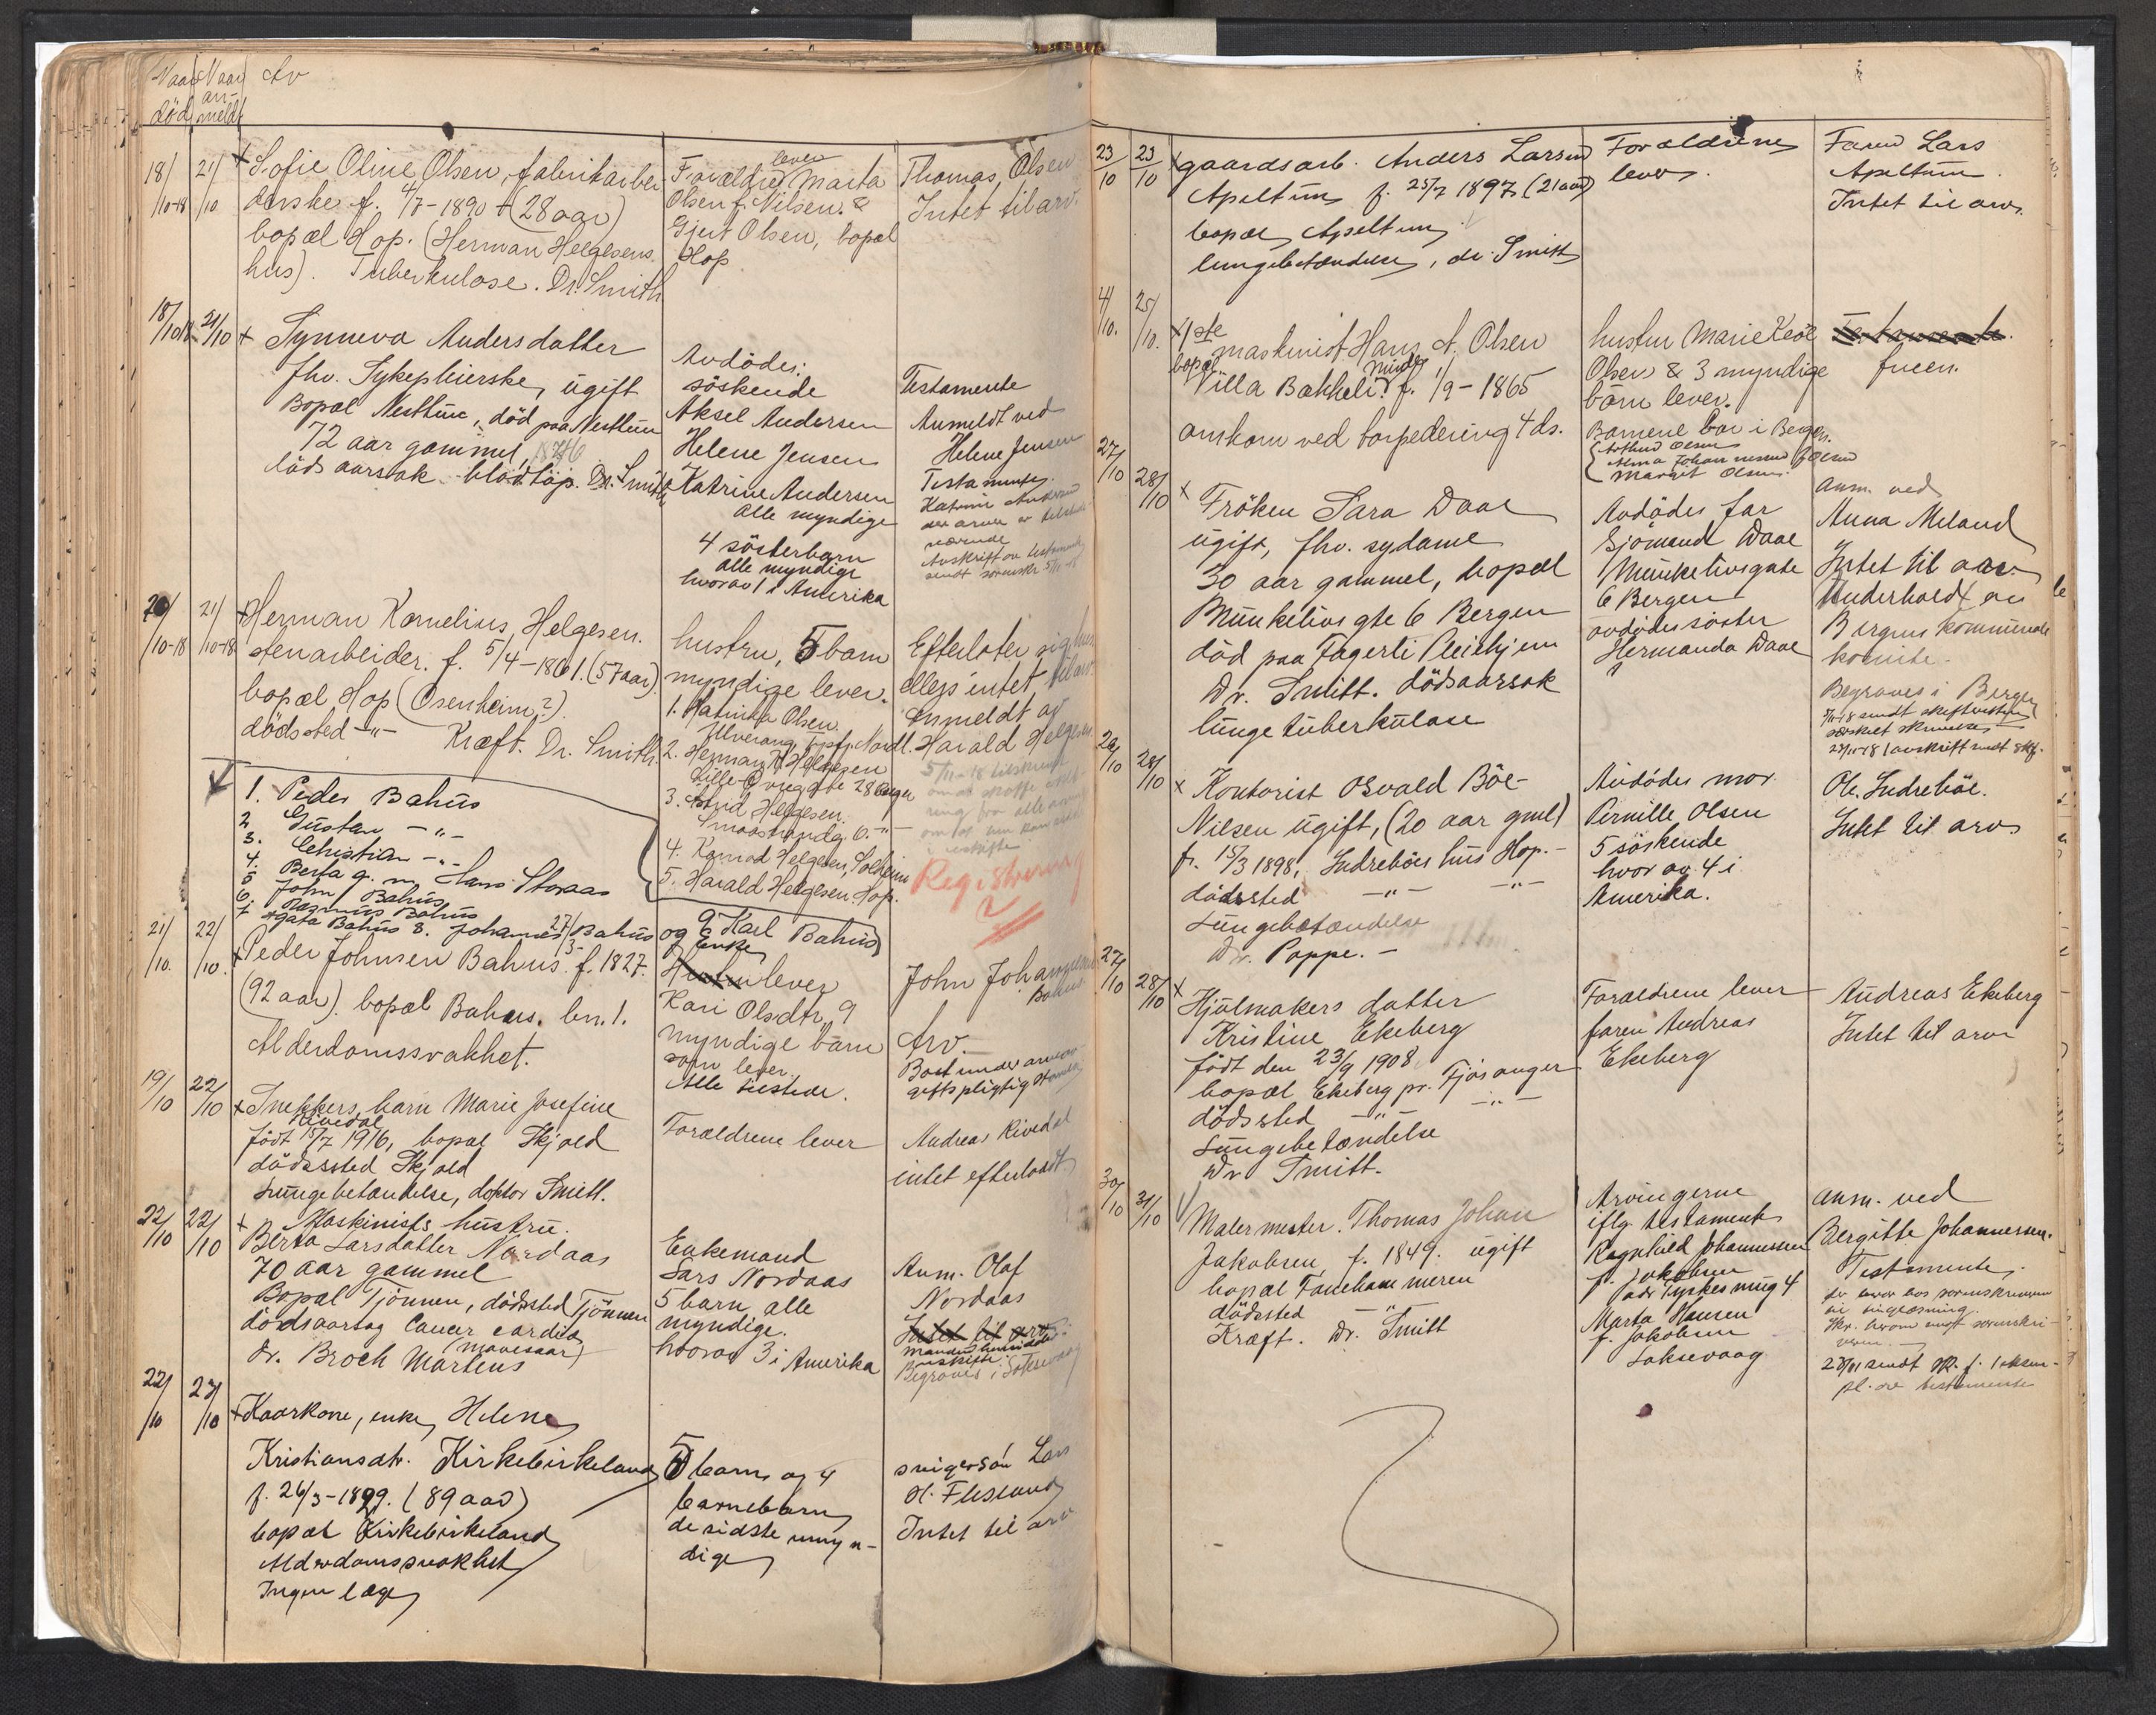 Naar Naar Av
an-
død meldt
18/10-18 21/10 + Sofie Oline Olsen, fabrikarbei-
derske f. 4/7-1890 + (28 aar)
bopæl Hop. (Herman Helgesens
hus). Tuberkulose. Dr. Smith
lever
Forældre Marta
Olsen f. Nilsen &
Gjert Olsen, bopæl
Hop
Thomas Olsen
Intet til arv.
18/10 18 21/10 + Synneva Andersdatter
fhv. Sykepleierske, ugift
Bopæl Nesttun, død paa Nesttun
72 aar gammel, 1846
död aarsak blodtap. Dr. Smith
Avdødes:
søskende
Aksel Andersen
Helene Jensen
Katrine Andersen
Alle myndige
4 søsterbarn
alle myndige
hvorav 1 i Amerika
Testamente
Anmeldt ved
Helene Jensen
Testamente
Katrine Andersen
den arver er tilstede-
værende
Avskrift av testamente
sendt sorenskr. 5/11-18
20/10-18 21/10-18 + Herman Kornelius Helgesen.
stenarbeider. f. 5/4-1861. (57 aar).
bopæl Hop (Osenheim?)
dødssted -"- Kræft. Dr. Smith.
hustru, 5 barn
myndige lever.
1. Katinka Olsen
2. Herman H Helgesen
Lille Øvregate 28 Bergen
3. Astrid Helgesen.
Smaastrandg. 6. -"-
4. Konrad Helgesen, Solheim
5. Harald Helgesen Hop.
Efterlater sig hus
ellers intet til arv.
Anmeldt av
Harald Helgesen
5/11-18 tilskrevet
Registrering
1. Peder Bahus
2 Gustav -"-
3. Christian -"-
4. Berta g. m. Hans Storaas
5 John Bahus
6. Rasmus Bahus
7 Agata Bahus 8. Johannes Bahus og 9 Karl Bahus
21/10. 22/10. + Peder Johnsen Bahus. f. 27/5 1827.
(92 aar). bopæl Bahus. bn. 1.
Alderdomssvakhet.
Enke
Hustru lever
Kari Olsdtr, 9
myndige barn
som lever.
Alle tilstede.
John Johannesen
Bahus
Arv.
Boet under arveav-
giftspligtig størrelse
19/10 22/10 + Snekkers barn Marie Josefine
Rivedal
født 15/7 1916, bopæl Skjold
dødssted Skjold
Lungebetændelse, doktor Smitt.
Forældrene lever
Andreas Rivedal
intet efterladt
22/10 22/10 + Maskinists hustru.
Berta Larsdatter Nordaas
70 aar gammel
Bopæl Tjønnen, dødssted Tjønnen
dødsaarsag Cancer cardia
(mavesaar)
Dr. Broch Martens
Enkemand
Lars Nordaas
5 barn, alle
myndige.
hvorav 3 i Amerika
Anm. Olaf
Nordaas
Intet til arv.
Manden hensidder
i uskifte
Begraves i Laksevaag
22/10 23/10 + Kaarkone, enke, Helene
Kristiansdtr. Kirkebirkeland
f. 26/3-1829. (89 aar)
bopæl Kirkebirkeland
Alderdomssvakhet
Ingen læge
5 barn og 4
barnebarn
de sidste umyn-
dige
svigersøn Lars
H. Flesland
Intet til arv
23/10 23/10 + gaardsarb. Anders Larsen
Apeltun f. 25/7 1897 (21 aar)
bopæl Apeltun
lungebetændelse, dr. Smitt
Forældrene
lever
Faren Lars
Apeltun.
Intet til arv.
4/10. 25/10. + 1ste
maskinist Hans A. Olsen
bopæl Minde
Villa Bakkeli. f. 1/9-1865
omkom ved torpedering 4 ds.
hustru Marie Kroe
Olsen & 3 myndige
barn lever.
Barnene bor i Bergen.
Arthur Olsen
Alma Johannessen f. Olsen
Margit Olsen.
Testamente.
fruen.
27/10 28/10 + Frøken Sara Daae
ugift, fhv. sydame
30 aar gammel, bopæl
Munkelivsgte 6 Bergen
død paa Fagerli Pleiehjem
Dr. Smitt. dødsaarsak
lungetuberkulose
Avdødes far
Sjømand Daae
Munkelivsgate
6 Bergen
avdødes søster
Hermanda Daae
Anm. ved
Anna Meland
Intet til arv.
Underholdt av
Bergens kommunale
komite.
Begraves i Bergen
5/11-18 sendt skifteretten
særskilt skrivelse
27/11-18 1 avskrift sendt skf.
26/10 28/10 + Kontorist Osvald Böe-
Nilsen ugift, (20 aar gml)
f. 15/3 1898, Indrebøes hus Hop.-
dødssted -"- -"-
Lungebetændelse
Dr. Poppe.-
Avdødes mor
Pernille Olsen
5 søskende
hvor av 4 i
Amerika.
Ole Indrebøe.
Intet til arv
27/10 28/10 + Hjulmakers datter
Kristine Ekeberg
født den 23/9 1908
bopæl Ekeberg pr. Fjøsanger
dødssted -"- -"-
Lungebetændelse
Dr Smitt.
Forældrene lever
faren Andreas
Ekeberg
Andreas Ekeberg
Intet til arv
30/10 31/10 Malermester. Thomas Johan
Jakobsen, f. 1849. ugift
bopæl Fanehammeren
dødssted -"-
Kræft. Dr. Smitt
Arvingerne
iflg. testament
Ragnhild Johannessen
f. Jakobsen
adr Tyskesmug 4
Marta Hansen
f. Jakobsen
Laksevaag
anm. ved
Bergitte Johannessen.
Testamente,
der beror hos sorenskriveren
til tinglæsning.
Skr. herom sendt sorenskri-
veren.-
28/11 sendt skf. 1 eksem-
pl. av testamente